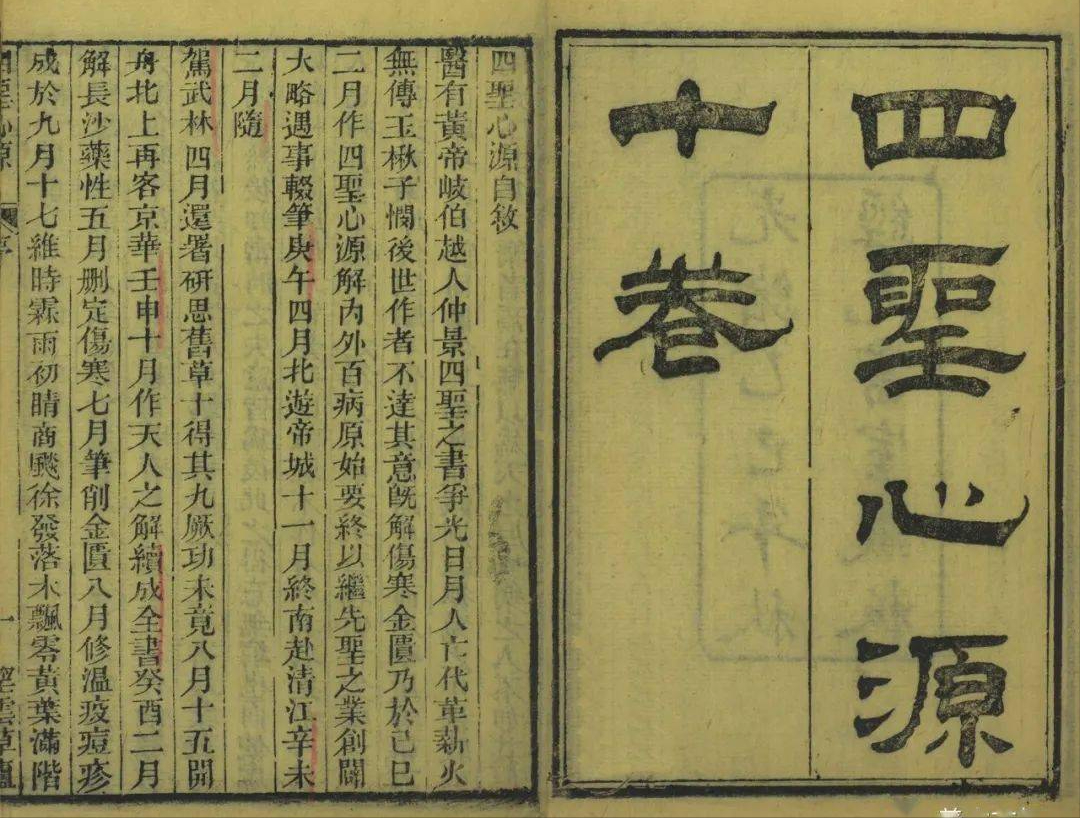 四聖心源
十卷
四聖心源自敘
醫有黃帝岐伯越人仲景四聖之書爭光日月人亡代革薪火
無傳玉楸子憫後世作者不達其意旣解傷寒金匱乃於己巳
二月作四聖心源解內外百病原始要終以繼先聖之業創闢
大略遇事輟筆庚午四月北遊帝城十一月終南赴清江辛未
二月隨
駕武林四月還署研思舊草十得其九厥功未竟八月十五開
舟北上再客京華壬申十月作天人之解續成全書癸酉二月
解長沙藥性五月刪定傷寒七月筆削金匱八月修溫疫痘疹
成於九月十七維時霖雨初晴商飈徐發落木飄零黃葉滿階
四聖心源
序
一